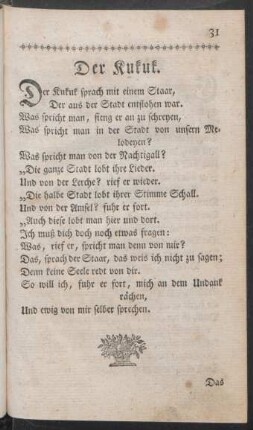 31
Der Kukuk.
Der Kukuk sprach mit einem Staar,
Der aus der Stadt entflohen war.
Was spricht man, fieng er an zu schreyen,
Was spricht man in der Stadt von unsern Me-
lodeyen?
Was spricht man von der Nachtigall?
„Die ganze Stadt lobt ihre Lieder.
Und von der Lerche? rief er wieder.
„Die halbe Stadt lobt ihrer Stimme Schall.
Und von der Amsel? fuhr er fort.
„Auch diese lobt man hier und dort.
Ich muß dich doch noch etwas fragen:
Was, rief er, spricht man denn von mir?
Das, sprach der Staar, das weis ich nicht zu sagen;
Denn keine Seele redt von dir.
So will ich, fuhr er fort, mich an dem Undank
rächen,
Und ewig von mir selber sprechen.
Das